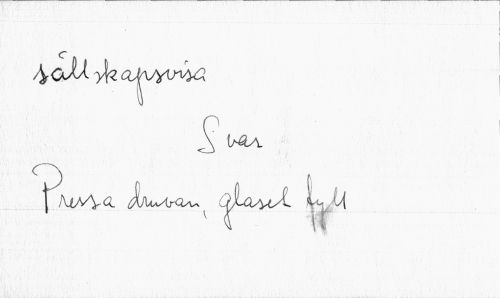 sällskapsvisa
Svar
Pressa druvan, glaset fyll